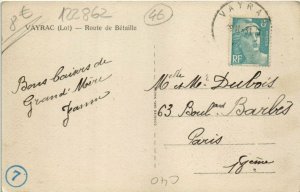 8€
122862
46
VAYRAC (Lot) — Route de Bétaille
VAYRAC
RF
Bons baisers de
Grand' Mère
Jeanne
Mlle et Mr Dubois
63 Boulard Barbès
Paris
7